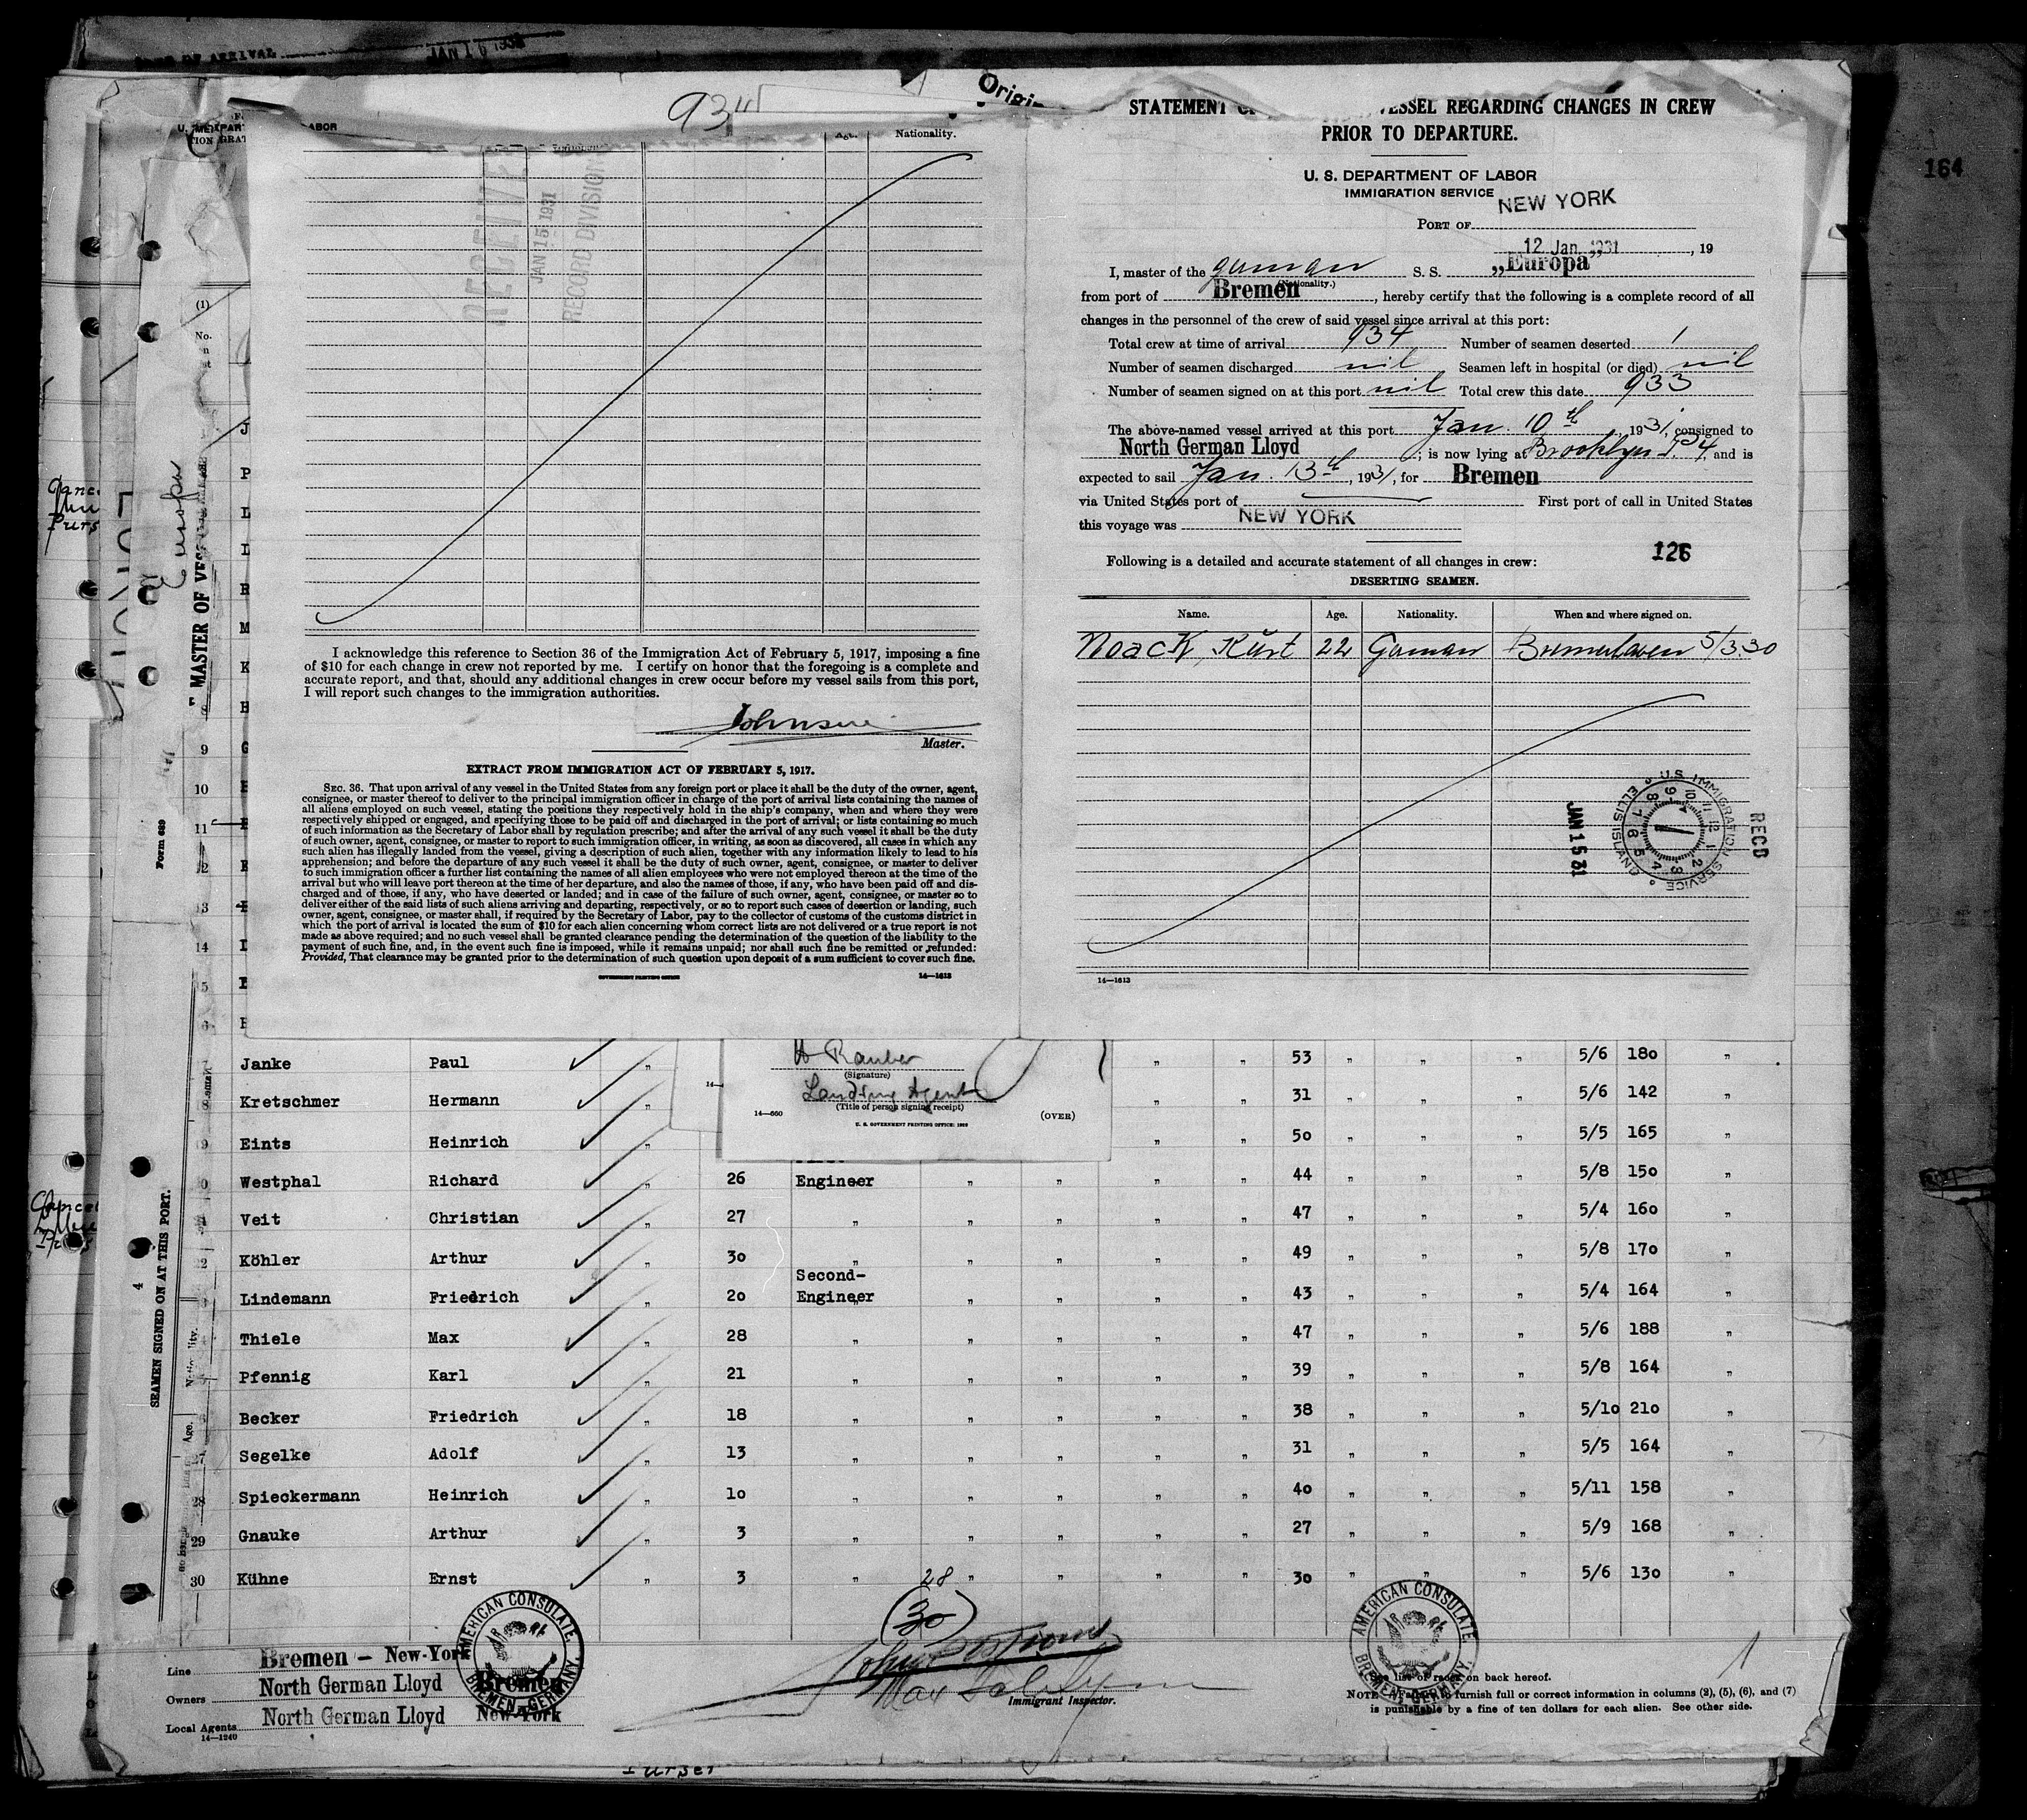 PORT OF ARRIVAL JAN 16 1931
164
934
Origin
LABOR
Age. Nationality.
RECEIVED
JAN 15 1931
RECORD DIVISION
I acknowledge this reference to Section 36 of the Immigration Act of February 5, 1917, imposing a fine
of $10 for each change in crew not reported by me. I certify on honor that the foregoing is a complete and
accurate report, and that, should any additional changes in crew occur before my vessel sails from this port,
I will report such changes to the immigration authorities.
Johnsen
Master.
EXTRACT FROM IMMIGRATION ACT OF FEBRUARY 5, 1917.
SEC. 36. That upon arrival of any vessel in the United States from any foreign port or place it shall be the duty of the owner, agent,
consignee, or master thereof to deliver to the principal immigration officer in charge of the port of arrival lists containing the names of
all aliens employed on such vessel, stating the positions they respectively hold in the ship's company, when and where they were
respectively shipped or engaged, and specifying those to be paid off and discharged in the port of arrival; or lists containing so much
of such information as the Secretary of Labor shall by regulation prescribe; and after the arrival of any such vessel it shall be the duty
of such owner, agent, consignee, or master to report to such immigration officer, in writing, as soon as discovered, all cases in which any
such alien has illegally landed from the vessel, giving a description of such alien, together with any information likely to lead to his
apprehension; and before the departure of any such vessel it shall be the duty of such owner, agent, consignee, or master to deliver
to such immigration officer a further list containing the names of all alien employees who were not employed thereon at the time of the
arrival but who will leave port thereon at the time of her departure, and also the names of those, if any, who have been paid off and dis-
charged and of those, if any, who have deserted or landed; and in case of the failure of such owner, agent, consignee, or master so to
deliver either of the said lists of such aliens arriving and departing, respectively, or so to report such cases of desertion or landing, such
owner, agent, consignee, or master shall, if required by the Secretary of Labor, pay to the collector of customs of the customs district in
which the port of arrival is located the sum of $10 for each alien concerning whom correct lists are not delivered or a true report is not
made as above required; and no such vessel shall be granted clearance pending the determination of the question of the liability to the
payment of such fine, and, in the event such fine is imposed, while it remains unpaid; nor shall such fine be remitted or refunded:
Provided, That clearance may be granted prior to the determination of such question upon deposit of a sum sufficient to cover such fine.
GOVERNMENT PRINTING OFFICE 14—1613
STATEMENT O VESSEL REGARDING CHANGES IN CREW
PRIOR TO DEPARTURE.
U. S. DEPARTMENT OF LABOR
IMMIGRATION SERVICE
PORT OF NEW YORK
12 Jan 1931, 19
I, master of the german S. S. „Europa"
(Nationality.)
from port of Bremen, hereby certify that the following is a complete record of all
changes in the personnel of the crew of said vessel since arrival at this port:
Total crew at time of arrival 934 Number of seamen deserted 1
Number of seamen discharged nil Seamen left in hospital (or died) nil
Number of seamen signed on at this port nil Total crew this date 933
The above-named vessel arrived at this port Jan. 10th, 1931, consigned to
North German Lloyd; is now lying at Brooklyn P. 4, and is
expected to sail Jan. 13th, 1931, for Bremen
via United States port of First port of call in United States
this voyage was NEW YORK
126
Following is a detailed and accurate statement of all changes in crew:
DESERTING SEAMEN.
Name. Age. Nationality. When and where signed on.
Noack, Kurt 22 German Bremerhaven 5/3.30
RECD
U.S. IMMIGRATION SERVICE ELLIS ISLAND
JAN 15 31
14—1613
Europa
MASTER OF VESS
Form 689
4
SEAMEN SIGNED ON AT THIS PORT.
Nationality.
Age.
H Rauber
(Signature)
Landing Agent
(Title of person signing receipt)
14—660 (OVER)
U. S. GOVERNMENT PRINTING OFFICE: 1929
Janke Paul „ „ „ 53 „ „ „ 5/6 180 „
Kretschmer Hermann „ „ „ 31 „ „ „ 5/6 142 „
Eints Heinrich „ „ „ 50 „ „ „ 5/5 165 „
Westphal Richard „ 26 Engineer „ „ „ „ 44 „ „ „ 5/8 150 „
Veit Christian „ 27 „ „ „ „ „ 47 „ „ „ 5/4 160 „
Köhler Arthur „ 30 „ „ „ „ „ 49 „ „ „ 5/8 170 „
Second-
Lindemann Friedrich „ 20 Engineer „ „ „ „ 43 „ „ „ 5/4 164 „
Thiele Max „ 28 „ „ „ „ „ 47 „ „ „ 5/6 188 „
Pfennig Karl „ 21 „ „ „ „ „ 39 „ „ „ 5/8 164 „
Becker Friedrich „ 18 „ „ „ „ „ 38 „ „ „ 5/10 210 „
27 Segelke Adolf „ 13 „ „ „ „ „ 31 „ „ „ 5/5 164 „
28 Spieckermann Heinrich „ 10 „ „ „ „ „ 40 „ „ „ 5/11 158 „
29 Gnauke Arthur „ 3 „ „ „ „ „ 27 „ „ „ 5/9 168 „
30 Kühne Ernst „ 3 „ „ „ „ „ 30 „ „ „ 5/6 130 „
28
(30)
Line Bremen – New-York
Owners North German Lloyd Bremen
Local Agents North German Lloyd New-York
14—1240
AMERICAN CONSULATE, BREMEN, GERMANY.
Immigrant Inspector.
AMERICAN CONSULATE, BREMEN, GERMANY.
See list of races on back hereof.
NOTE.—Failure to furnish full or correct information in columns (2), (5), (6), and (7)
is punishable by a fine of ten dollars for each alien. See other side.
Purser